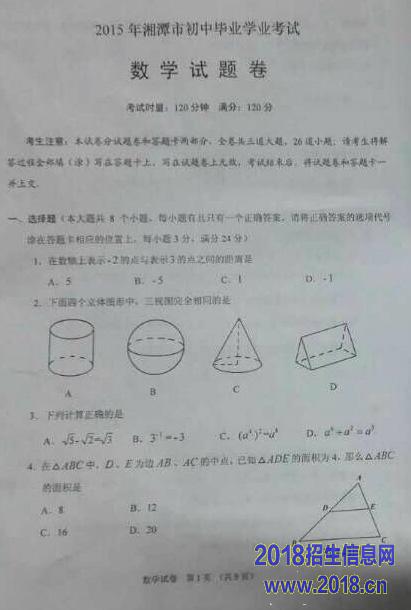 2015年湘潭市初中毕业学业考试
数学试题卷
考试时量：120分钟 满分：120分
考生注意：本试卷分试题卷和答题卡两部分，全卷共三道大题，26道小题；请考生将解
答过程全部填（涂）写在答题卡上，写在试题卷上无效，考试结束后，将试题卷和答题卡一
并上交.
一、选择题（本大题共 8 个小题，每小题有且只有一个正确答案，请将正确答案的选项代号
涂在答题卡相应的位置上，每小题3分，满分24分）
1．在数轴上表示-2的点与表示3的点之间的距离是
A．5 B．-5 C．1 D．-1
2．下面四个立体图形中，三视图完全相同的是
A B C D
3．下列计算正确的是
A．√5-√2=√3 B．3⁻¹=-3 C．(a⁴)²=a⁸ D．a⁶÷a²=a³
4．在△ABC中，D、E为边AB、AC的中点，已知△ADE的面积为4，那么△ABC
的面积是
A
A．8 B．12
D E
C．16 D．20
B C
2018招生信息网
www.2018.cn
数学试卷 第1页（共8页）